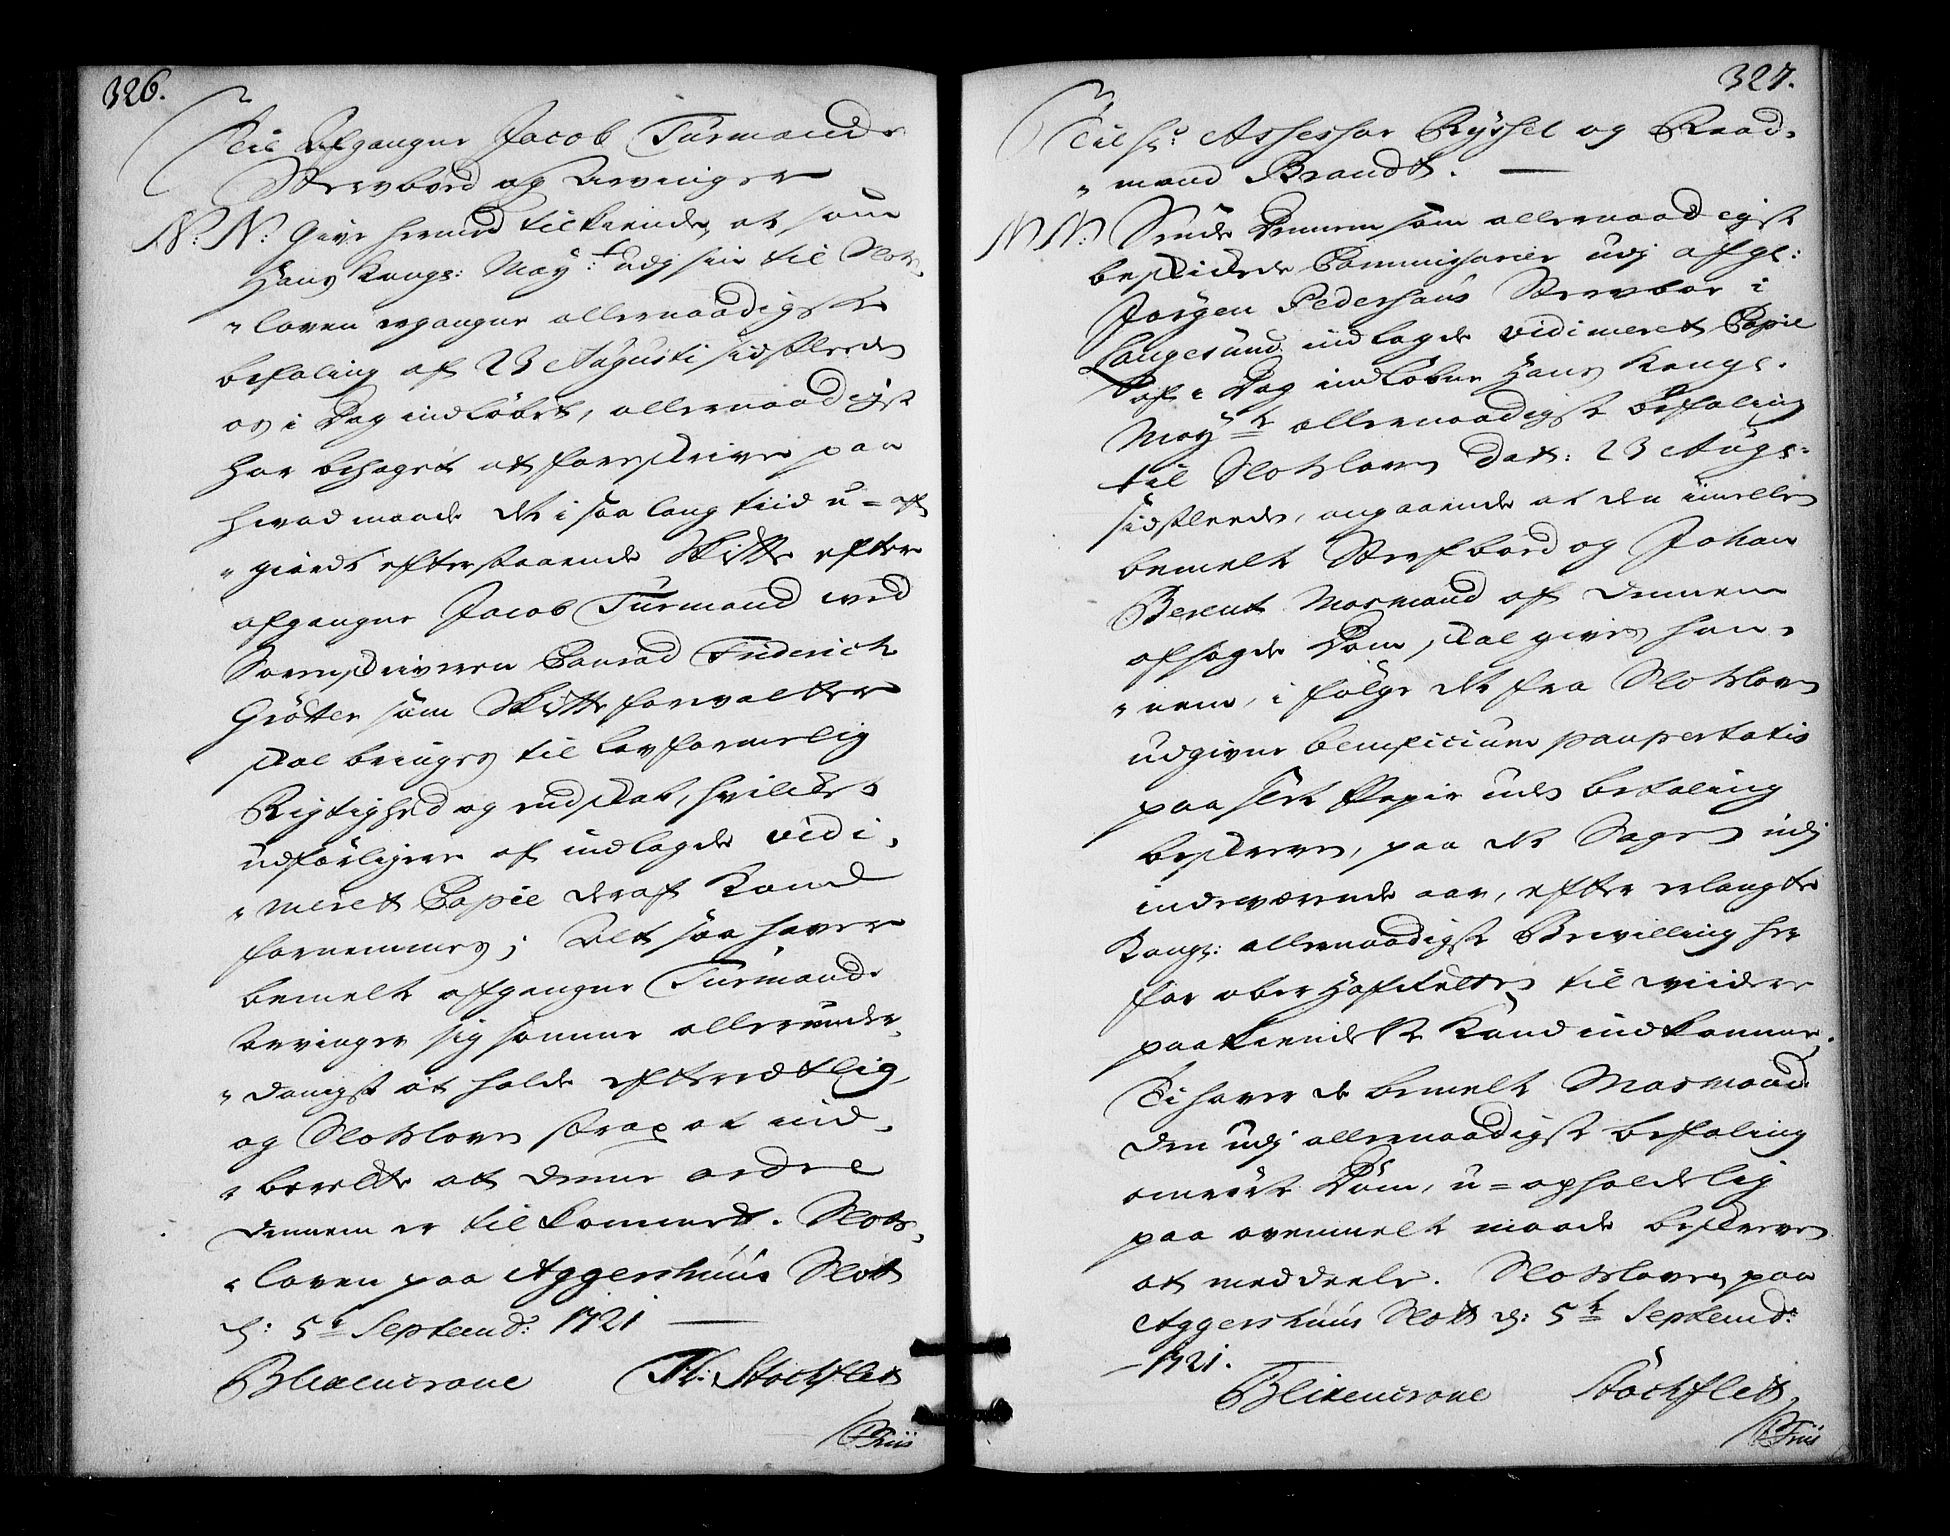 326.
Til Afgangne Jacob Turmands
Sterbord og Arvinger
N: N: Give hermed tilkiende, at som
Hans Kongl: May:t udj sin til Slots-
"loven ergangne allernaadigste
befaling af 23 Augusti sidstleeden
os i Dag indløbet, allernaadigst
har behaget at foreskrive paa
hvad maade det i saa lang tiid u-af
"giordt efterstaaende Skifte efter
afgangne Jacob Turmand ved
Sorenskriveren Conrad Friderich
Grötter som Skifteforvalter
skal bringes til lovformelig
Rigtighed og endskab, hvilket
udførligere af indlagde vidi-
"meret Copie deraf kand
fornemmes; Alt saa haver
bemelte afgangne Turmands
Arvinger sig samme allerunder-
"danigst at holde efterretlig,
og Slotsloven strax at ind-
"berette at denne ordre
dennem er tilkommet. Slots-
"loven paa Aggershuus Slott
d: 5te Septemb: 1721
Blixencrone Th: Stochflet
P Friis
327.
Til Hr: Assessor Ryssel og Raad-
"mand Brandt.
N N: Sende Dennem som allernaadigst
beskickede Commissarier udj afgl:
Jørgen Pedersøns Sterboe i
Langesund indlagde vidimeret Copie
af i Dag indløbne Hans Kongl.
May:ts allernaadigste befaling
til Slotsloven dat: 23 Aug:
sidstleeden, angaaende at den imellem
bemelte Sterfbord og Johan
Berent Mormand af dennem
afsagde Dom skal gives ham-
"nem, i følge det fra Slotsloven
udgivne beneficium paupertatis
paa slet Papir uden betaling
beskreven, paa det Sagen udj
indeværende aar, efter erlangte
Kongl: allernaadigste Bevilling her
for ober Hofretten til viidere
paakiendelse kand indkomme,
Ti haver de bemelte Mormand
den udj allernaadigste befaling
omrørte Dom, u-opholdelig
paa ovenmelte maade beskreven
at meddeele. Slotsloven paa
Aggershuus Slott d: 5te Septemb:
1721.
Blixencrone Stochflett
P Friis